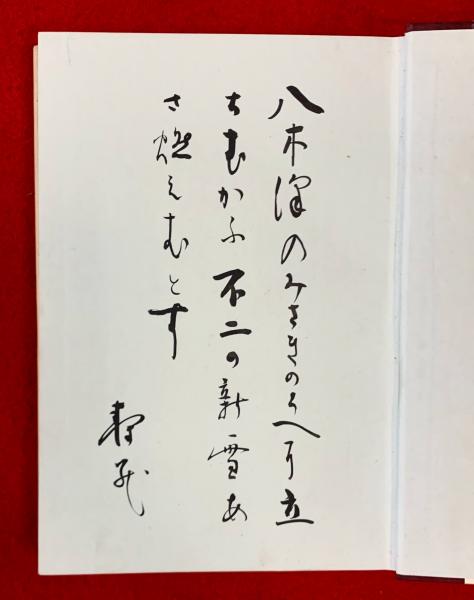 八木澤のみさきのうへに立
ちむかふ不二の新雪あ
さ燃えむとす